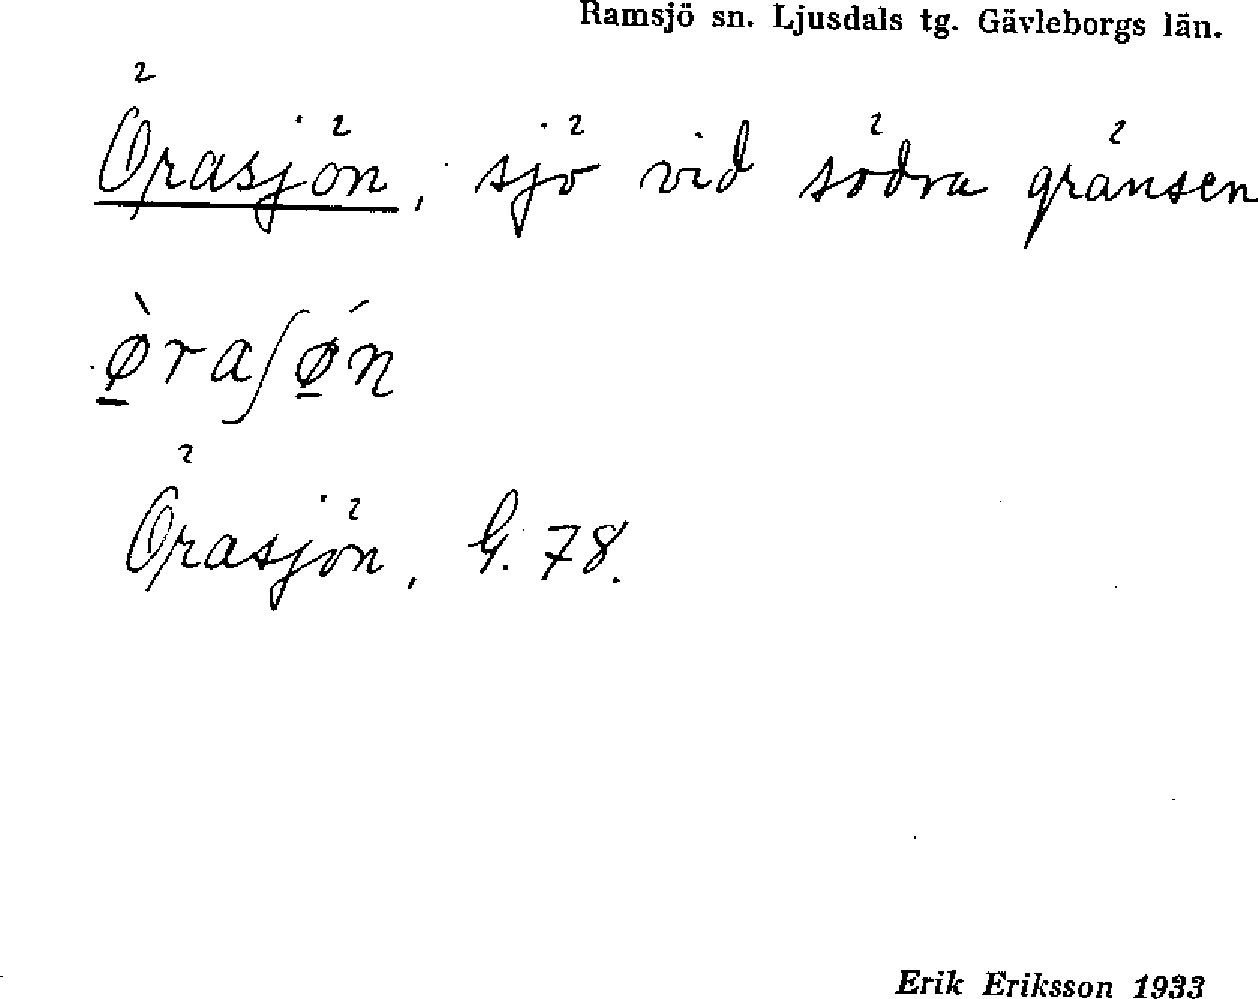 Ramsjö sn. Ljusdals tg. Gävleborgs län.
Örasjön, sjö vid södra gränsen
ø̱̀raʃǿ̱n
Örasjön, G. 78.
Erik Eriksson 1933